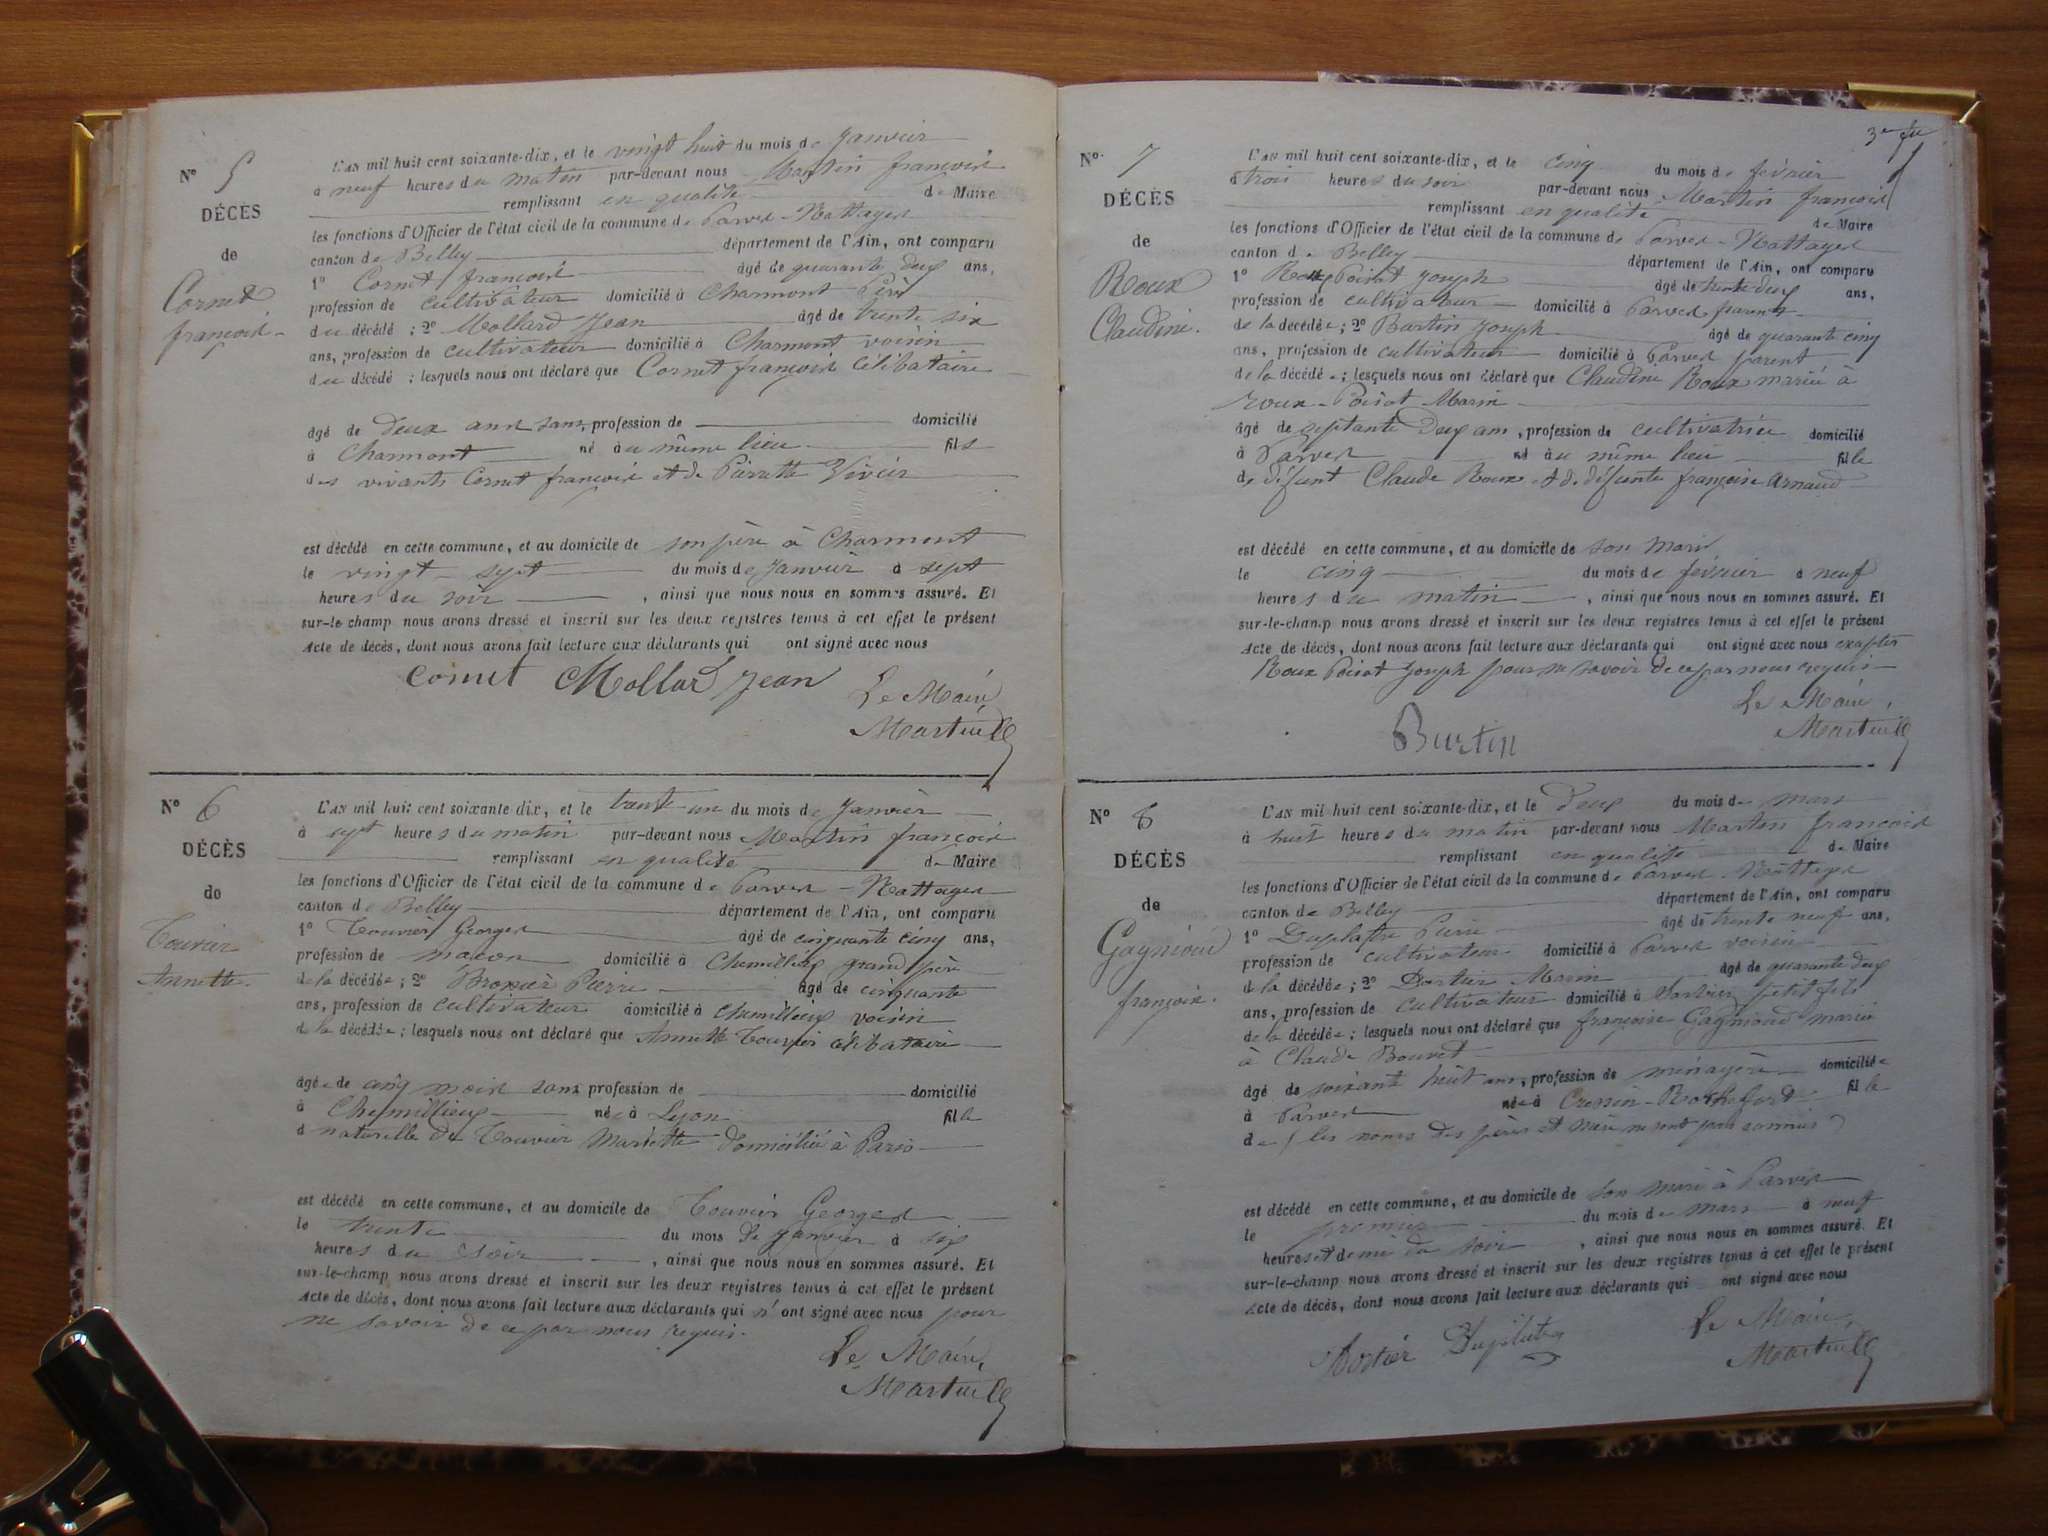 N° 5
DÉCÈS
de
Cornet
françois
L'AN mil huit cent soixante-dix, et le vingt huit du mois de Janvier
à neuf heures du matin par-devant nous Martin françois
remplissant en qualité de Maire
les fonctions d'Officier de l'état civil de la commune de Parves-Nattages
canton de Belley département de l'Ain, ont comparu
1° Cornet françois âgé de quarante deux ans,
profession de cultivateur domicilié à Charmont Père
du décédé ; 2° Mollard Jean âgé de trente six
ans, profession de cultivateur domicilié à Charmont voisin
du décédé ; lesquels nous ont déclaré que Cornet françois célibataire
âgé de deux ans sans profession de domicilié
à Charmont né au même lieu fils
des vivants Cornet françois et de Pierrette
est décédé en cette commune, et au domicile de son père à Charmont
le vingt-sept du mois de Janvier à sept
heures du soir , ainsi que nous nous en sommes assuré. Et
sur-le-champ nous avons dressé et inscrit sur les deux registres tenus à cet effet le présent
Acte de décès, dont nous avons fait lecture aux déclarants qui ont signé avec nous
Cornet Mollard Jean
Le Maire,
Martin
N° 6
DÉCÈS
de
Touvier
Annette
L'AN mil huit cent soixante-dix, et le trente-un du mois de Janvier
à sept heures du matin par-devant nous Martin françois
remplissant en qualité de Maire
les fonctions d'Officier de l'état civil de la commune de Parves-Nattages
canton de Belley département de l'Ain, ont comparu
1° Touvier Georges âgé de cinquante cinq ans,
profession de maçon domicilié à Chemillieu grand père
de la décédée ; 2° Pierre âgé de cinquante
ans, profession de cultivateur domicilié à Chemillieu voisin
de la décédée ; lesquels nous ont déclaré que Annette Touvier célibataire
âgée de cinq mois sans profession de domicilié
à Chemillieu née à Lyon fille
naturelle de Touvier Mariette domiciliée à Paris
est décédé en cette commune, et au domicile de Touvier Georges
le trente du mois de Janvier à six
heures du soir , ainsi que nous nous en sommes assuré. Et
sur-le-champ nous avons dressé et inscrit sur les deux registres tenus à cet effet le présent
Acte de décès, dont nous avons fait lecture aux déclarants qui n'ont signé avec nous pour
ne savoir de ce par nous requis.
Le Maire,
Martin
3e
N° 7
DÉCÈS
de
Roux
Claudine.
L'AN mil huit cent soixante-dix, et le cinq du mois de février
à trois heures du soir par-devant nous Martin françois
remplissant en qualité de Maire
les fonctions d'Officier de l'état civil de la commune de Parves-Nattages
canton de Belley département de l'Ain, ont comparu
1° Roux Poirot Joseph âgé de trente deux ans,
profession de cultivateur domicilié à Parves parent
de la décédée ; 2° Burtin Joseph âgé de quarante cinq
ans, profession de cultivateur domicilié à Parves parent
de la décédée ; lesquels nous ont déclaré que Claudine Roux mariée à
Roux-Poirot Marin
âgé de septante deux ans, profession de cultivatrice domicilié
à Parves né au même lieu fille
de défunt Claude Roux et de défunte françoise Arnaud
est décédé en cette commune, et au domicile de son mari
le cinq du mois de février à neuf
heures du matin , ainsi que nous nous en sommes assuré. Et
sur-le-champ nous avons dressé et inscrit sur les deux registres tenus à cet effet le présent
Acte de décès, dont nous avons fait lecture aux déclarants qui ont signé avec nous excepter
Roux Poirot Joseph pour ne savoir de ce par nous requis
Le Maire,
Burtin
Martin
N° 8
DÉCÈS
de
Gagnioud
françoise.
L'AN mil huit cent soixante-dix, et le deux du mois de mars
à huit heures du matin par-devant nous Martin françois
remplissant en qualité de Maire
les fonctions d'Officier de l'état civil de la commune de Parves Nattages
canton de Belley département de l'Ain, ont comparu
1° Duplatre Pierre âgé de trente neuf ans,
profession de cultivateur domicilié à Parves voisin
de la décédée ; 2° Marin âgé de quarante deux
ans, profession de cultivateur domicilié à petit fils
de la décédée ; lesquels nous ont déclaré que françoise Gagnioud mariée
à Claude Bouvet
âgé de soixante huit ans, profession de ménagère domiciliée
à Parves née à Rochefort fille
de (les noms des père et mère ne sont pas connus)
est décédé en cette commune, et au domicile de son mari à Parves
le premier du mois de mars à neuf
heures et demi du soir , ainsi que nous nous en sommes assuré. Et
sur-le-champ nous avons dressé et inscrit sur les deux registres tenus à cet effet le présent
Acte de décès, dont nous avons fait lecture aux déclarants qui ont signé avec nous
Le Maire,
Duplatre
Martin